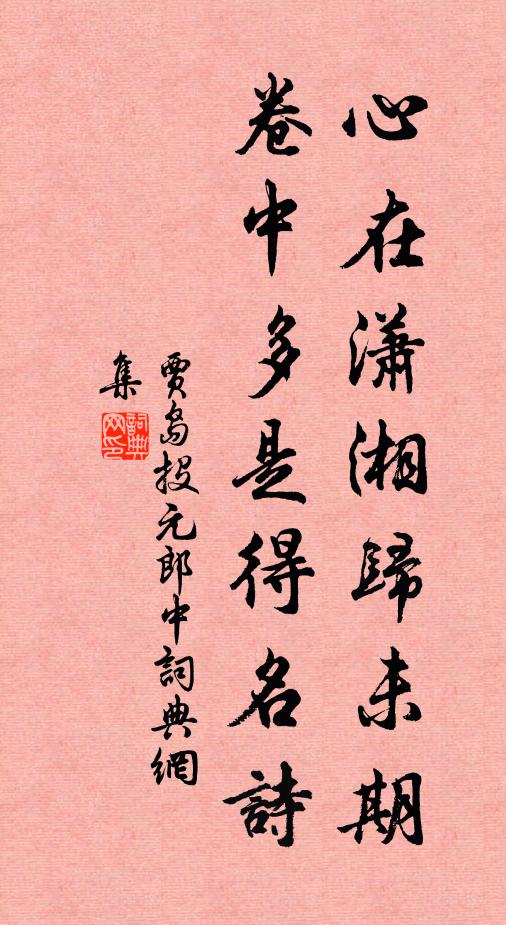 心在瀟湘歸未期
卷中多是得名詩
賈島投元郎中詞典網
集
詞典
网印